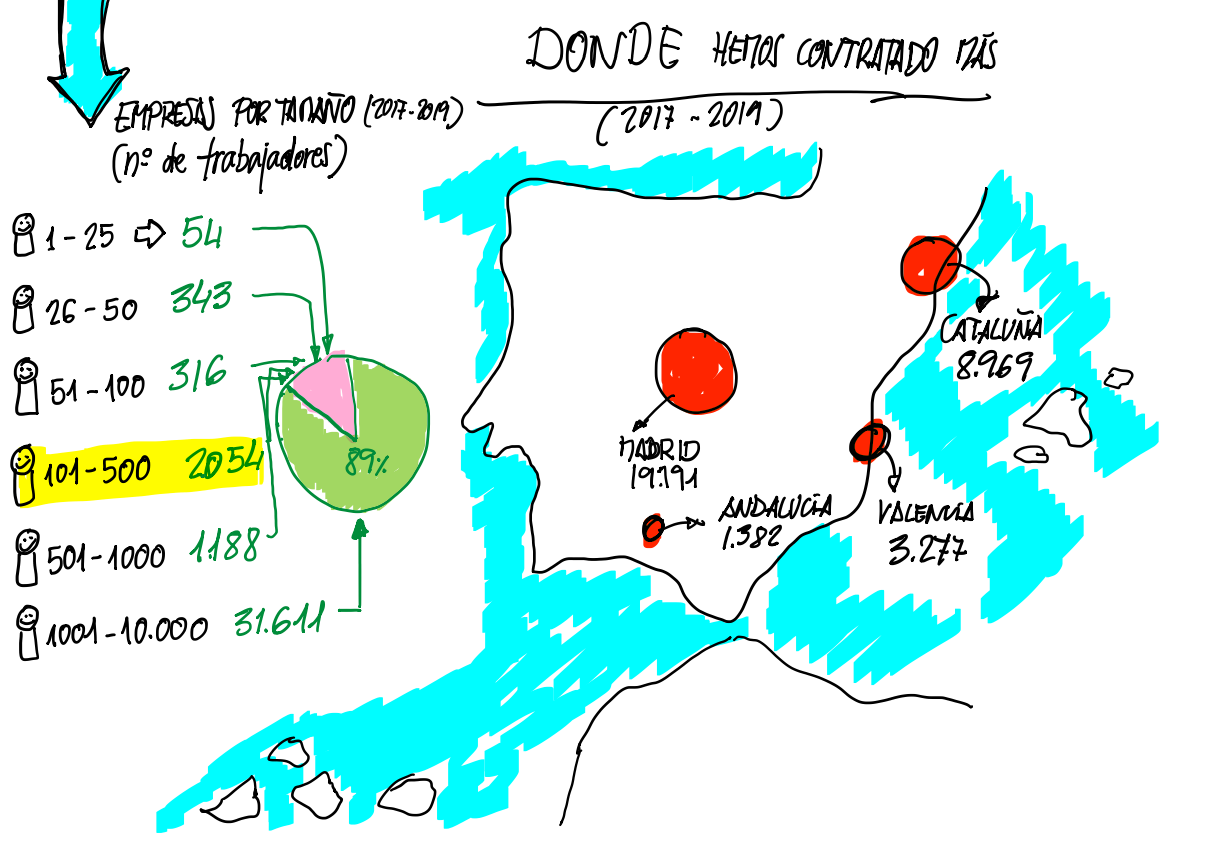 DONDE HEMOS CONTRATADO MÁS
(2017-2019)
EMPRESAS POR TAMAÑO (2017-2019)
(nº de trabajadores)
1-25 ⇨ 54
26-50 343
51-100 316
101-500 2054
501-1000 1188
1001-10.000 31.611
89%
CATALUÑA
8.969
MADRID
19.191
ANDALUCÍA
1.382
VALENCIA
3.277